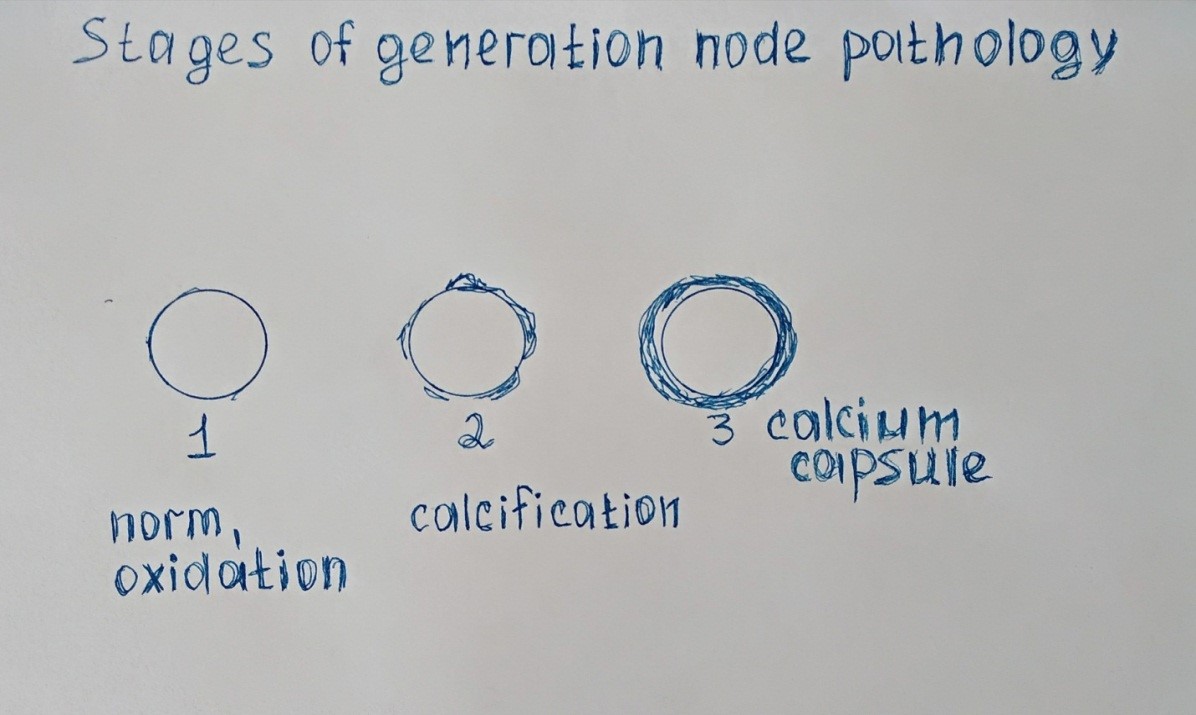 Stages of generation node pathology
1
2
3
calcium
capsule
norm,
oxidation
calcification